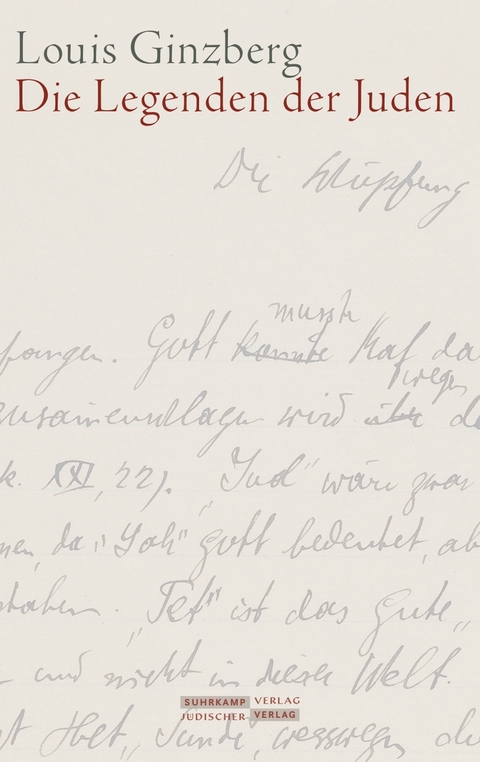 Louis Ginzberg
Die Legenden der Juden
Die Schöpfung
musste
fangen. Gott konnte Kaf da
wegen
zusammenschlagen wird über de
k. XXI, 22). „Jud" wäre zwar
nen, da „Jah" Gott bedeutet, ab
staben. „Tet" ist das Gute,
und nicht in dieser Welt.
SUHRKAMP VERLAG
JÜDISCHER VERLAG
t Het, „Sünde, weswegen di